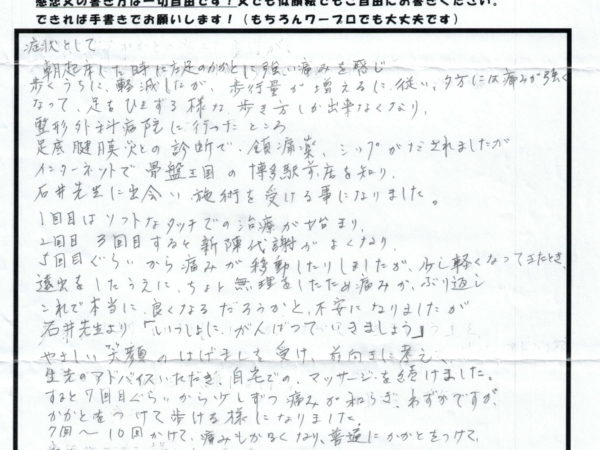 感想文の書き方は一切自由です！文でも似顔絵でもご自由にお書きください。
できれば手書きでお願いします！（もちろんワープロでも大丈夫です）
症状として
朝起床した時に左足のかかとに強い痛みを感じ
歩くうちに、軽減したが、歩行量が増えるに従い、夕方には痛みが強く
なって、足をひきずる様な歩き方しか出来なくなり、
整形外科病院に行ったところ
足底腱膜炎との診断で、鎮痛薬、シップがだされましたが
インターネットで骨盤王国の博多駅前店を知り、
石井先生に出会い施術を受ける事になりました。
1回目はソフトなタッチでの治療が始まり、
2回目 3回目すると新陳代謝がよくなり、
5回目ぐらいから痛みが移動したりしましたが、少し軽くなってきたとき、
遠出をしたうえに、ちょと無理をしたため痛みが、ぶり返し
これで本当に良くなるだろうかと、不安になりましたが
石井先生より「いっしょに、がんばっていきましょう」
やさしい笑顔のはげましを受け、前向きに考え、
先生のアドバイスいただき、自宅での、マッサージを続けました。
すると7回目ぐらいから少しずつ痛みが和らぎ、わずかですが、
かかとをつけて歩ける様になりました。
7回〜10回かけて、痛みもかるくなり、普通にかかとをつけて、